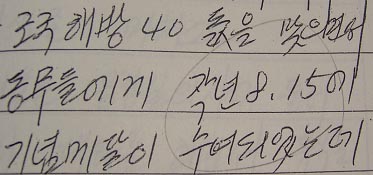 조국 해방 40 돐을 맞으면서
동무들에게 작년 8.15에
기념메달이 수여되였는데